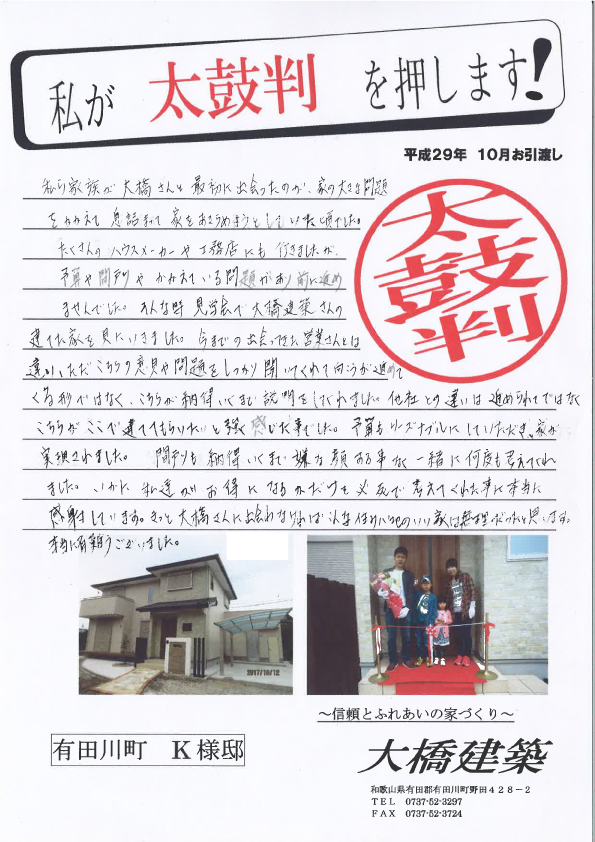 私が 太鼓判 を押します!
平成29年 10月お引渡し
太鼓判
私ら家族が大橋さんと最初に出会ったのが、家の大きな問題
をかかえて息詰まって家をあきらめようとしていた頃でした。
たくさんのハウスメーカーや工務店にも行きましたが、
予算や間取りやかかえている問題があり前に進め
ませんでした。そんな時見学会で大橋建築さんの
建てた家を見にいきました。今までの出会ってきた営業さんとは
違いただこちらの意見や問題をしっかり聞いてくれて向うが進めて
くる形ではなく、こちらが納得いくまで説明をしてくれました。他社との違いは進められてではなく
こちらがここで建ててもらいたいと強く感じた事でした。予算もリーズナブルにしていただき、家が
実現されました。 間取りも納得いくまで嫌な顔する事なく一緒に何度も考えてくれ
ました。いかに私達がお得になるかだけを必死で考えてくれた事に本当に
感謝しています。きっと大橋さんに出会わなければこんな住み心地のいい家は無理だったと思います。
本当に有難うございました。
2017/10/12
~信頼とふれあいの家づくり~
有田川町 K様邸
大橋建築
和歌山県有田郡有田川町野田428-2
TEL 0737-52-3297
FAX 0737-52-3724